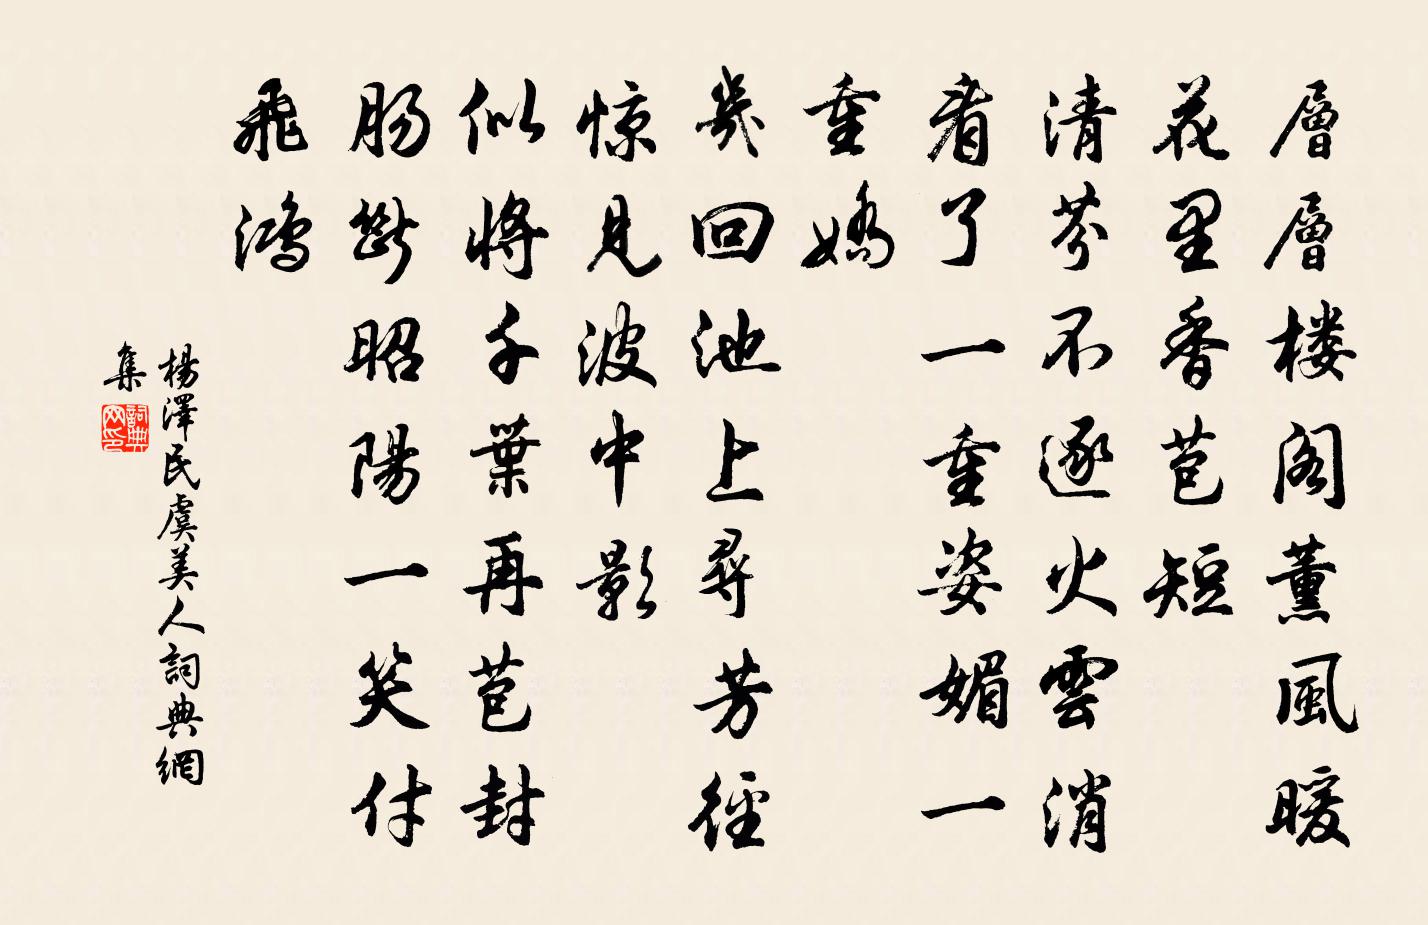 層層楼阁薫風暖
花里香苞短
清芬不逐火雲消
看了一重姿媚一
重嬌
幾回池上尋芳徑
惊見波中影
似將千葉再苞封
肠斷昭陽一笑付
飛鴻
楊澤民虞美人詞典網
集
詞典
网印